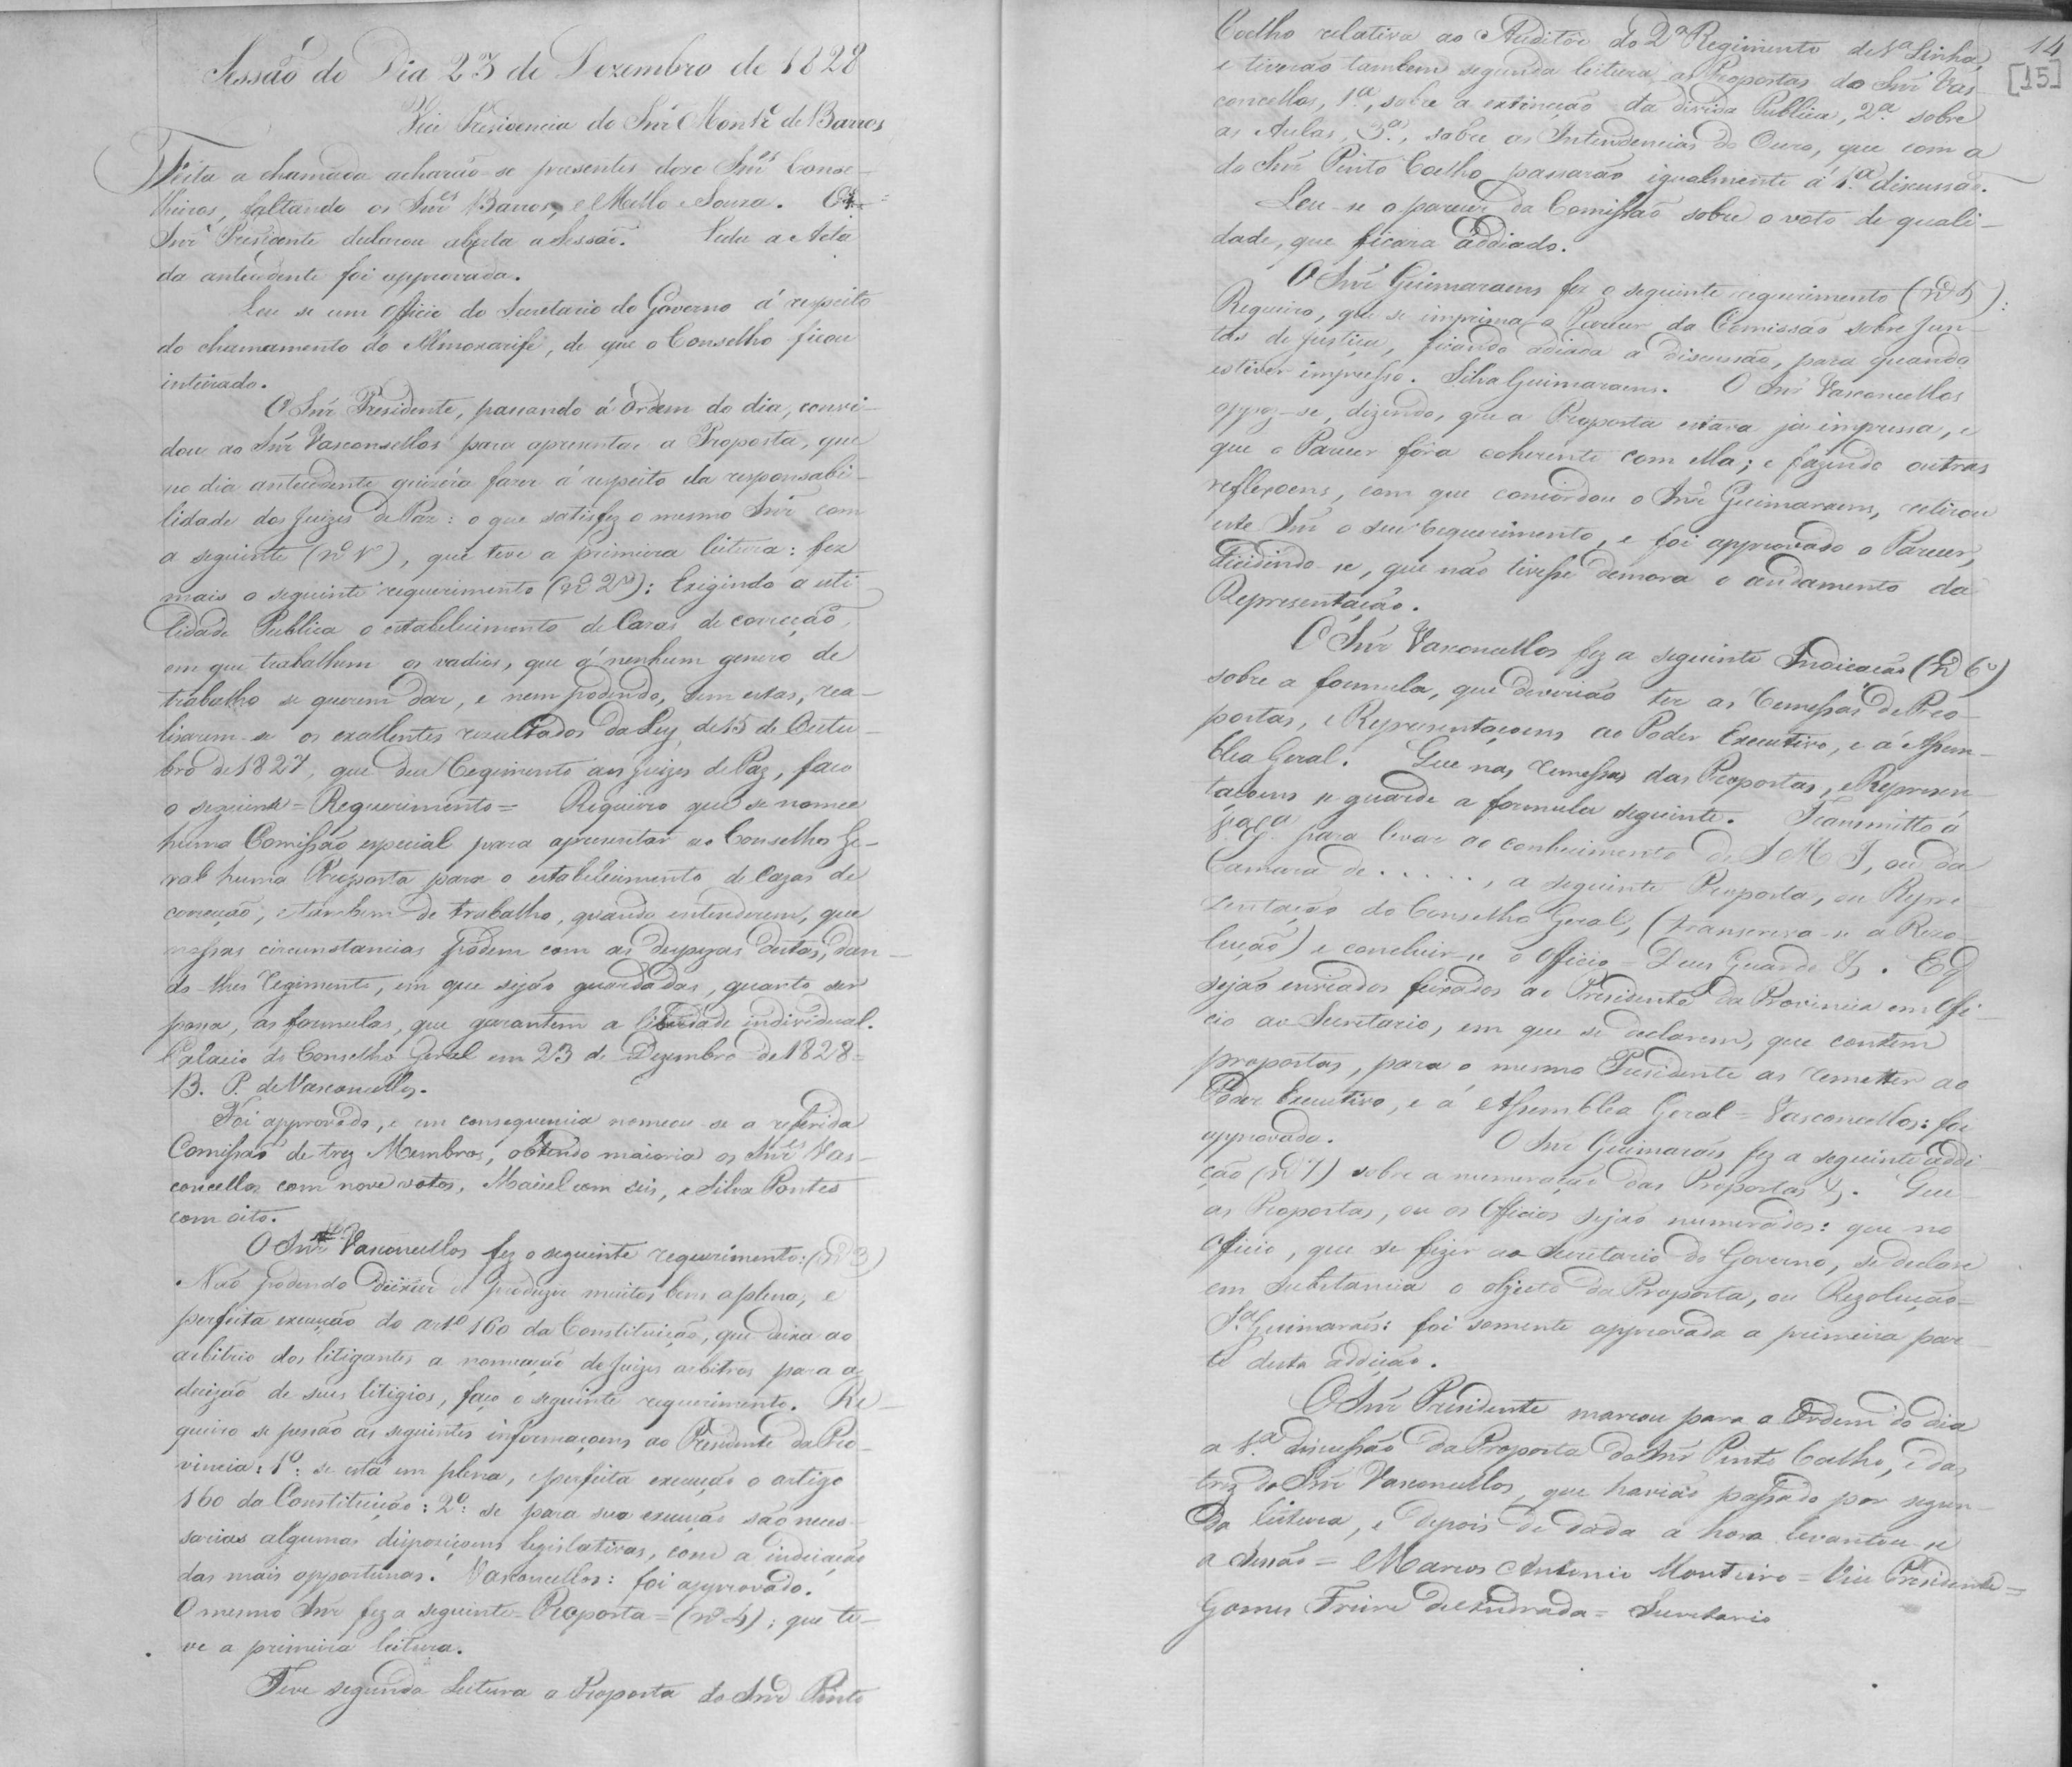 Sessão do Dia 23 de Dezembro de 1828
Vice Presidencia do Snr Montr.º de Barros
Feita a chamada acharão-se presentes doze Snr.es Conse-
lheiros, faltando os Snr.es Barros, e Mello e Souza. O
Snr Presidente declarou aberta a Sessão. Leda a Acta
da antecedente foi approvada.
Leu se um Officio do Secretario do Governo á respeito
do chamamento do Almoxarife, de que o Conselho ficou
inteirado.
O Snr Presidente, passando á ordem do dia, convi-
dou ao Snr Vasconsellos para apresentar a Proposta, que
no dia antecedente quizéra fazer á respeito da responsabi-
lidade dos Juizes de Paz: o que satisfez o mesmo Snr com
a seguinte (nº 1º), que teve a primeira leitura: fez
mais o seguinte requerimento (nº 2º): Exigindo a uti
lidade Publica o estabelecimento de Cazas de correcção,
em que trabalhem os vadios, que á nenhum genero de
trabalho se querem dar, e nem podendo, sem estas, rea-
lisarem-se os exallentes rezultados da Ley de 15 de Outu-
bro de 1827, que deu Regimento aos Juizes de Paz, faço
o seguinte = Requerimento = Requeiro que se nomee
huma Comissão especial para apresentar ao Conselho Ge-
ral huma Proposta para o estabelecimento de Cazas de
correcção, e tambem de trabalho, quando entenderem, que
nessas circunstancias pódem com as despezas destas, dan-
do-lhes Regimento, em que sejão guardadas, quanto ser
possa, as formulas, que garantem a liberdade individual.
Palacio do Conselho Geral em 23 de Dezembro de 1828=
B. P. de Vasconcellos.
Foi approvado, e em consequencia nomeou-se a referida
Comissão de trez Membros, obtendo maioria os Snr.es Vas-
concellos com nove votos, Maciel com seis, e Silva Pontes
com oito.
O Snr Vasconcellos fez o seguinte requerimento: (nº 3)
Não podendo deixar de produzir muitos bens a plena, e
perfeita execução do artº 160 da Constituição, que deixa ao
arbitrio dos litigantes a nomeação de Juizes arbitros para a
decizão de seus litigios, faço o seguinte requerimento. Re-
queiro se pessão as seguintes informaçoens ao Presidente da Pro-
vincia: 1º: se está em plena, e perfeita execução o artigo
160 da Constituição: 2º: se para sua execução são neces-
sarias algumas disposiçoens legislativas, com a indicação
das mais opportunas. Vasconcellos: foi approvado.
O mesmo Snr fez a seguinte = Proposta = (nº 4); que te-
ve a primeira leitura.
Teve segunda Leitura a Proposta do Snr Pinto
14
[15]
Coelho relativa ao Auditor do 2º Regimento de 1ª Linha,
e tiverão tambem segunda leitura as Propostas do Snr Vas-
concellos, 1ª, sobre a extincção da divida Publica, 2ª sobre
as Aulas, 3ª, sobre as Intendencias do Ouro, que com a
do Snr Pinto Coelho passarão igualmente á 1ª discussão.
Leu-se o parecer da Comissão sobre o voto de quali-
dade, que ficára addiado.
O Snr Guimaraens fez o seguinte requerimento (nº 5):
Requeiro, que se imprima o Parecer da Comissão sobre Jun-
tas de Justiça, ficando adiada a discussão, para quando
estiver impresso. Silva Guimaraens. O Snr Vasconcellos
oppoz-se, dizendo, que a Proposta estava já impressa, e
que o Parecer fôra coherente com ella; e fazendo outras
reflexoens, com que concordou o Snr Guimaraens, retirou
este Snr o seu requerimento, e foi approvado o Parecer,
dicidindo-se, que não tivesse demora o andamento da
Representação.
O Snr Vasconcellos fez a seguinte Indicação (nº 6º)
sobre a formula, que deverião ter as remessas de Pro-
postas, e Representaçoens ao Poder Executivo, e á Assem-
blea Geral. Que nas remessas das Propostas, e Represen-
taçoens se guarde a formula seguinte. Transmitto á
V. Exª para levar ao conhecimento de S M I, ou da
Camara de . . . . . ., a seguinte Proposta, ou Repre
zentação do Conselho Geral, (transcreva-se a Rezo-
lução) e concluir-se o Officio = Deus Guarde &. E q
sejão enviados feixados ao Presidente da Provincia em Offi-
cio ao Secretario, em que se declarem, que contêm
propostas, para o mesmo Presidente as remetter ao
Poder Executivo, e á Assemblea Geral = Vasconcellos: foi
approvada. O Snr Guimarães fez a seguinte addi
ção (nº 7) sobre a numeração das Propostas &. Que
as Propostas, ou os Officios sejão numerados: que no
Officio, que se fizer ao Secretario do Governo, se declare
em substancia o objecto da Proposta, ou Rezolução=
S.ª Guimarães: foi somente approvada a primeira par-
te desta addição.
O Snr Presidente marcou para a Ordem do dia
a 1ª discussão da Proposta do Snr Pinto Coelho, e das
trez do Snr Vasconcellos, que havião passado por segun-
da leitura, e depois de dada a hora levantou-se
a Sessão = Marcos Antonio Monteiro = Vice Presidente=
Gomes Freire de Andrada = Secretario